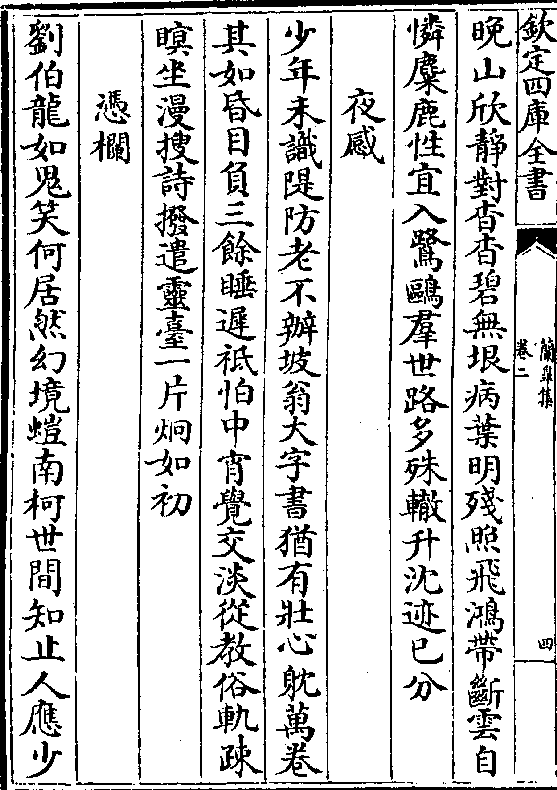 欽定四庫全書
蘭臯集
卷二
四
晚山欣靜對杳杳碧無垠病葉明殘照飛鴻帶斷雲自
憐麋鹿性宜入鷺鷗羣世路多殊轍升沈迹已分
夜感
少年未識隄防老不辦坡翁大字書猶有壯心躭萬卷
其如昏目負三餘睡遲祗怕中宵覺交淡從教俗軌疎
瞑坐漫搜詩撥遣靈臺一片炯如初
憑欄
劉伯龍如鬼笑何居然幻境螘南柯世間知止人應少